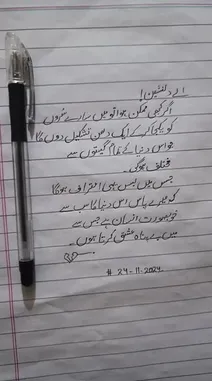 اے دلنشین!
اگر کبھی ممکن ہوا تو میں سارے سُروں
کو یکجا کر کے ایک دھن تشکیل دوں گا
جو اس دنیا کے تمام گیتوں سے
مختلف ہوگی۔
جس میں بس یہی اعتراف ہوگا
کہ میرے پاس اس دنیا کا سب سے
خوبصورت انسان ہے جس سے
میں بے پناہ عشق کرتا ہوں۔
# 24-11-2024